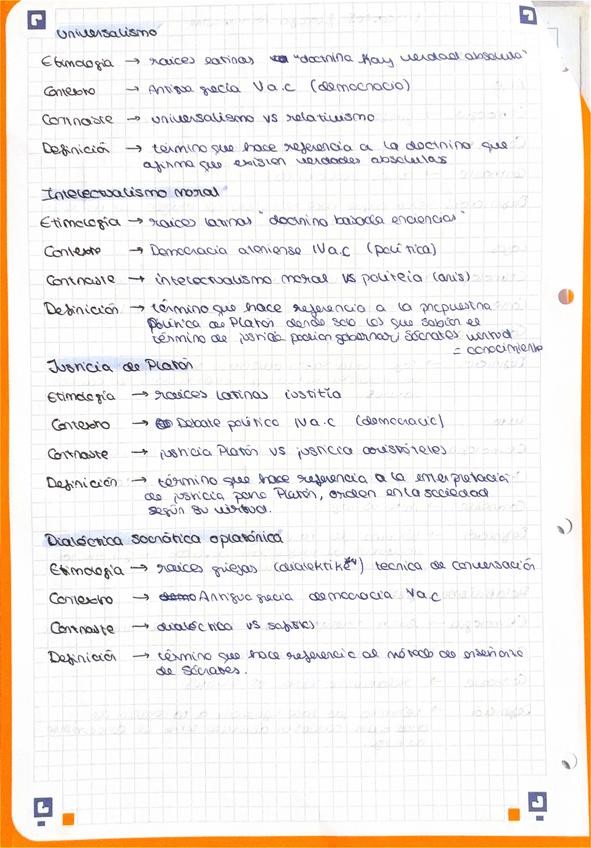 Universalismo
Etimología → raíces latinas "doctrina Hay verdad absoluta"
Contexto → Antigua grecia V a.c (democracia)
Contraste → universalismo vs relativismo
Definición → término que hace referencia a la doctrina que
afirma que existen verdades absolutas
Intelectualismo moral
Etimología → raíces latinas "doctrina basada en ciencias"
Contexto → Democracia ateniense IV a.c (política)
Contraste → intelectualismo moral vs politeia (aris)
Definición → término que hace referencia a la propuesta
política de Platón donde solo los que sabían el
término de justicia podían gobernar; Sócrates virtud
= conocimiento
Justicia de Platón
Etimología → raíces latinas iustitia
Contexto → Debate político IV a.c (democracia)
Contraste → justicia Platón vs justicia aristóteles
Definición → término que hace referencia a la interpretación
de justicia para Platón, orden en la sociedad
según su virtud.
Dialéctica socrática o platónica
Etimología → raíces griegas (dialektiké) tecnica de conversación
Contexto → Antigua grecia democracia V a.c
Contraste → dialéctica vs sofistas
Definición → término que hace referencia al método de enseñanza
de Sócrates.